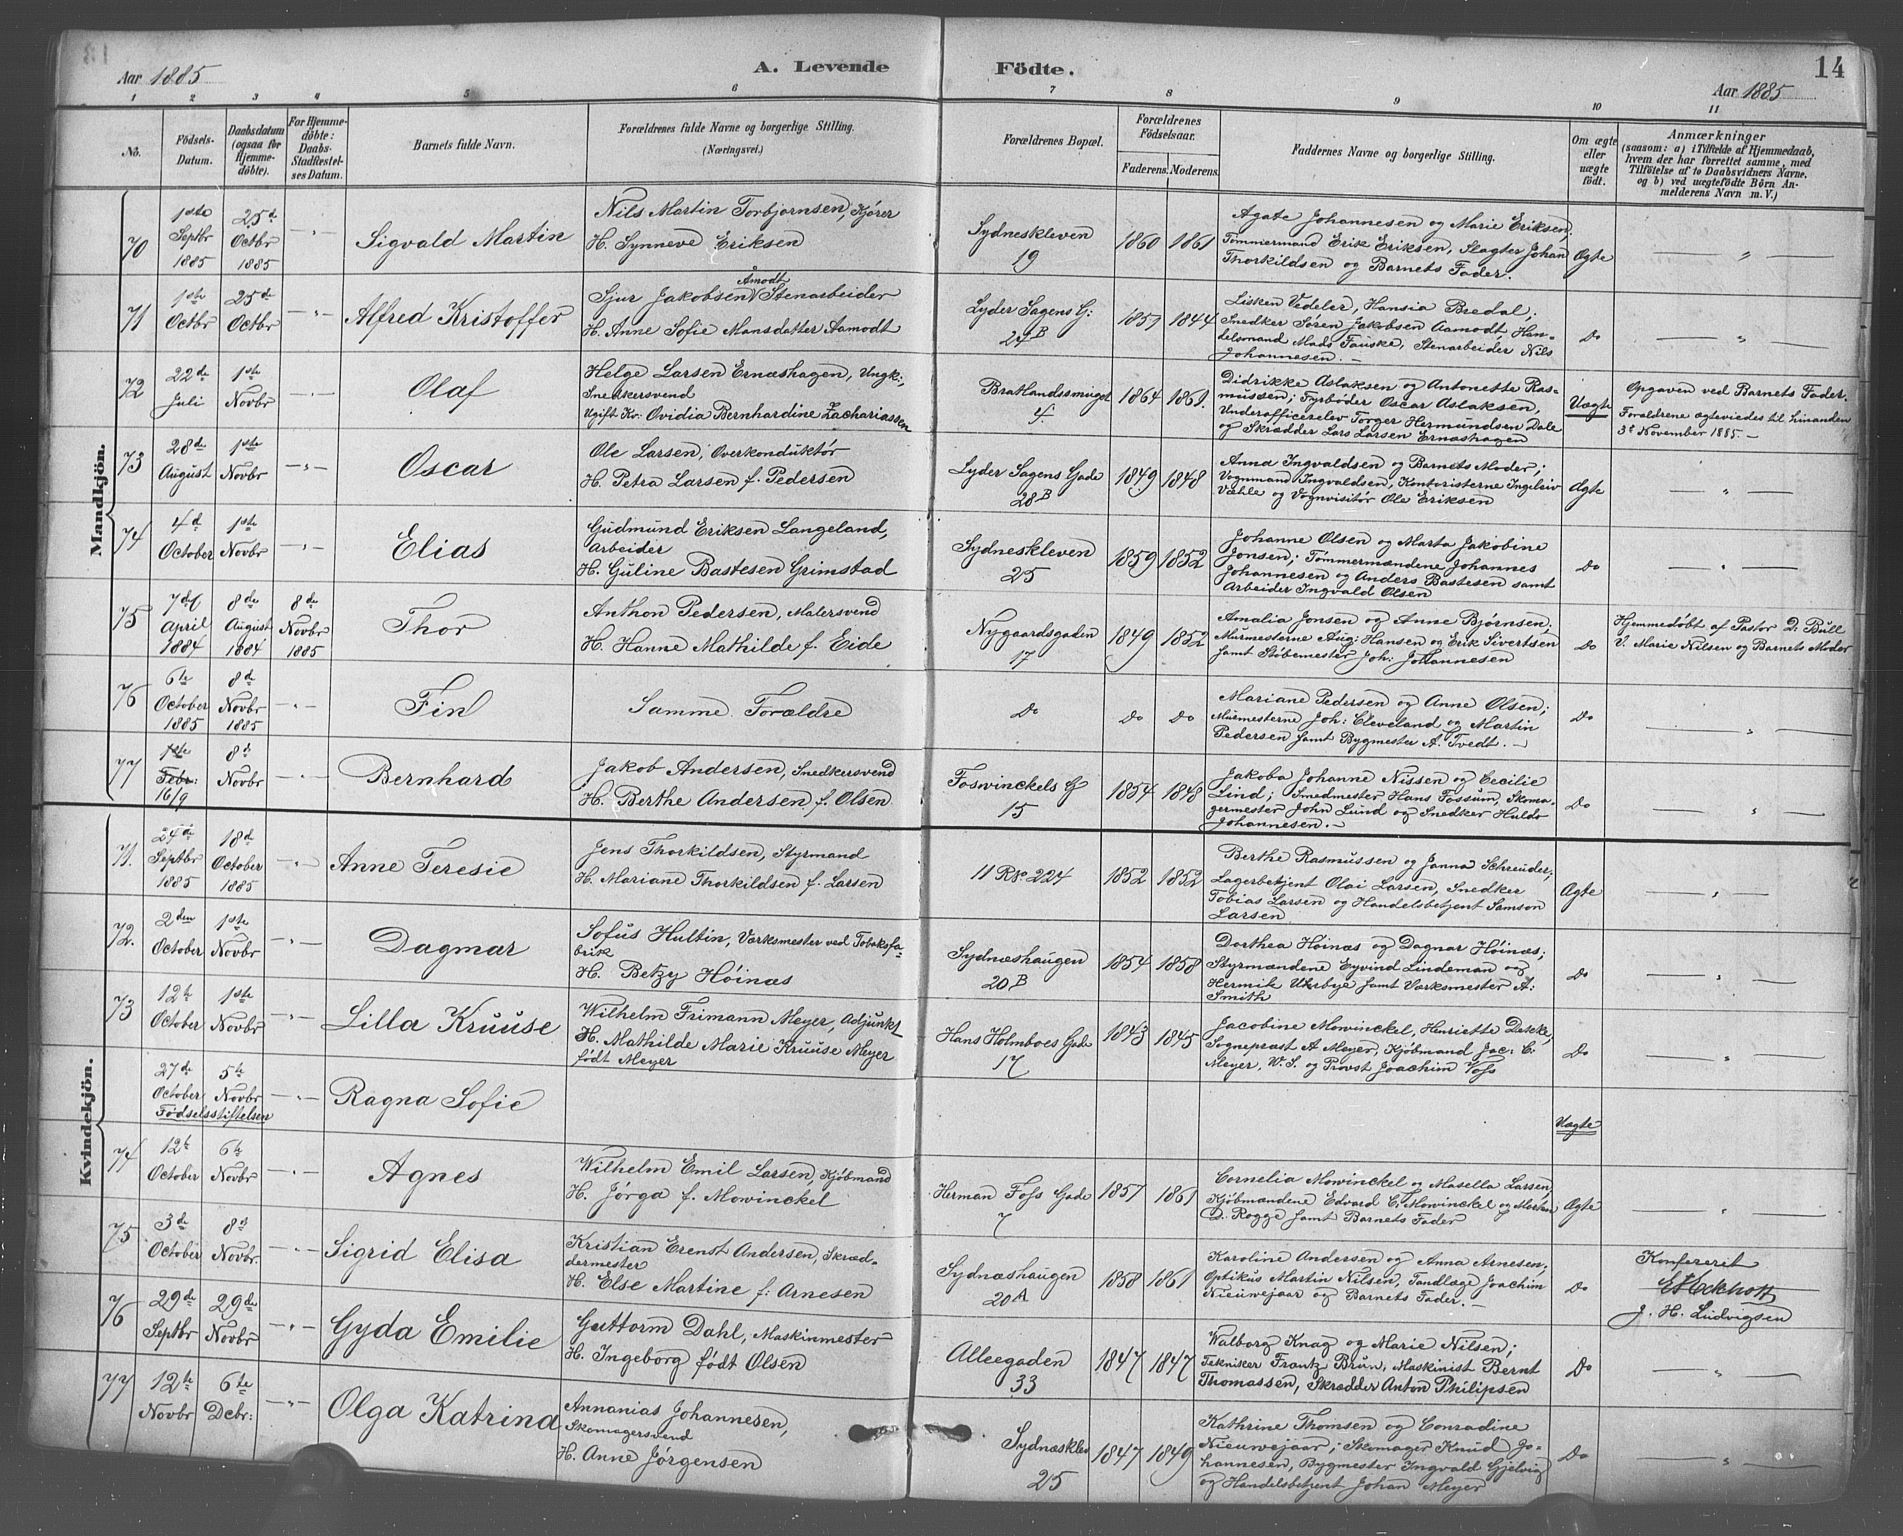 Aar 1885
A. Levende
Födte.
14
Aar 1885
1 2 3 4 5 6 7 8 9 10 11
No.
Födsels-Datum.
Daabsdatum (ogsaa for Hjemmedöbte).
For Hjemmedöbte: Daabs-Stadfæstelses Datum.
Barnets fulde Navn.
Forældrenes fulde Navne og borgerlige Stilling.
(Næringsvei.)
Forældrenes Bopæl.
Forældrenes Födselsaar.
Faderens. Moderens.
Faddernes Navne og borgerlige Stilling.
Om ægte eller uægte födt.
Anmærkninger
(saasom: a) i Tilfælde af Hjemmedaab,
hvem der har forrettet samme, med
Tilföielse af to Daabsvidners Navne.
og b) ved uægtefödte Börn An-
melderens Navn m.V.)
Mandkjön.
70
1ste Septbr 1885
25de Octbr 1885
Sigvald Martin
Nils Martin Torbjørnsen, Kjører
H. Synneve Eriksen
Sydneskleven
19
1860 1861
Agate Johannesen og Marie Eriksen,
Tømmermand Erik Eriksen, Slagter Johan
Thorkildsen og Barnets Fader.
Ægte
71
1ste Octbr
25de Octbr
Alfred Kristoffer
Aamodt
Sjur Jakobsen Stenarbeider
H. Anne Sofie Monsdatter Aamodt
Lyder Sagens G:
24B
1859 1844
Lisken Vedeler, Hansia Bredal;
Snedker Søren Jakobsen Aamodt, Han-
delsmand Mads Fauske, Stenarbeider Nils
Johannesen. —
Do
72
22de Juli
1ste Novbr
Olaf
Helge Larsen Ernæshagen, Ungk:,
Snedkersvend
Ugift Kv: Ovidia Bernhardine Zachariassen
Bratlandssmuget
4.
1864 1861.
Didrikke Aslaksen og Antonette Ras-
mussen; Fyrbøder Oscar Aslaksen,
Underofficerselev Torger Hermundsen Dale
og Skrædder Lars Larsen Ernæshagen
Uægte
Opgaven ved Barnets Fader.
Forældrene ægteviedes til hinanden
3de November 1885. —
73
28de August
1ste Novbr
Oscar
Ole Larsen, Overkonduktør
H. Petra Larsen f. Pedersen
Lyder Sagens Gade
28B
1849 1848
Anna Ingvaldsen og Barnets Moder;
Vognmand Ingvaldsen, Kontoristerne Ingileiv
Væhle og Vognvisitør Ole Eriksen
Ægte
74
4d October
1ste Novbr
Elias
Gudmund Eriksen Langeland,
Arbeider
H. Guline Bastesen Grimstad
Sydneskleven
25
1859 1852
Johanne Olsen og Marta Jakobine
Jonsen; Tømmermændene Johannes
Johannesen og Anders Bastesen samt
Arbeider Ingvald Olsen
Do
75
7de April 1884
8de August 1884
8de Novbr 1885
Thor
Anthon Pedersen, Malersvend
H. Hanne Mathilde f. Eide
Nygaardsgaden
17
1849 1852
Amalia Jonsen og Anne Bjørnsen;
Murmesterne Aug: Hansen og Erik Sivertsen
samt Støbemester Joh: Johannesen
Do
Hjemmedøbt af Pastor D. Bull
V. Marie Nilsen og Barnets Moder
76
6te October 1885
8d Novbr 1885
Fin
Samme Forældre
Do
Do Do
Mariane Pedersen og Anne Olsen;
Murmesterne Joh: Cleveland og Martin
Pedersen samt Bygmester A. Tvedt. —
Do
77
1ste Febr: 16/9
8d Novbr
Bernhard
Jakob Andersen, Snedkersvend
H. Berthe Andersen f. Olsen
Foswinckels G
15
1854 1848
Jakoba Johanne Nissen og Cecilie
Lind; Smedmester Hans Fossum, Skoma-
germester John Lund og Snedker Huldr
Johannesen. —
Do
Kvindekjön.
71.
24de Septbr 1885
18d October 1885
Anne Teresie
Jens Thorkildsen, Styrmand
H. Mariane Thorkildsen f. Larsen
11 R No 224
1852 1852
Berthe Rasmussen og Janna Schreuder;
Lagerbetjent Olai Larsen, Snedker
Tobias Larsen og Handelsbetjent Samson
Larsen
Ægte
72.
2den October
1ste Novbr
Dagmar
Sofus Hultin, Værksmester ved Tobaksfa-
brik
H. Betzy Höinæs
Sydnæshaugen
20B
1854 1858
Dorthea Höinæs og Dagmar Höinæs;
Styrmændene Eyvind Lindeman og
Hermik Utterbye samt Værksmester A:
Smith
Do
73
12te October
1ste Novbr
Lilla Kruuse
Wilhelm Frimann Meyer, Adjunkt
H. Mathilde Marie Kruuse Meyer
født Meyer
Hans Holmboes Gade
17
1843 1845
Jacobine Mowinckel, Henriette Detcke,
Sognepræst A Meyer, Kjøbmand Jac: C.
Meyer, W. S. og Provst Joachim Voss
Do
27de October
5te Novbr
Fødselsstiftelsen
Ragna Sofie
Uægte
74
12te October
6te Novbr
Agnes
Wilhelm Emil Larsen, Kjøbmand
H. Jørga f. Mowinckel
Herman Foss Gade
7
1857 1861
Cornelia Mowinckel og Masella Larsen,
Kjøbmændene Edvard C. Mowinckel og Morten
D. Rogge samt Barnets Fader
Ægte
75
3de October
8d Novbr.
Sigrid Elisa
Kristian Erenst Andersen, Skræd-
dermester
H. Else Martine f: Arnesen
Sydnæshaugen
20A
1858 1861
Karoline Andersen og Anna Arnesen,
Optikus Martin Nilsen, Tandlæge Joachim
Nieuwejaar og Barnets Fader. —
Do
Konfereret
J. H. Ludvigsen
76
29de Septbr
29de Novbr
Gyda Emilie
Guttorm Dahl, Maskinmester
H. Ingeborg født Olsen
Alleegaden
33
1847 1847
Walborg Knag og Marie Nilsen;
Tekniker Frantz Brun, Maskinist Bernt
Thomassen, Skrædder Anton Philipsen
Do
77
12te Novbr
6te Dcbr:
Olga Katrina
Annanias Johannesen,
Skomagersvend
H. Anne Jørgensen
Sydnæsklev
25
1847 1849
Kathrine Thomsen og Conradine
Nieuwejaar; Skomager Knud Jo-
hannesen, Bygmester Ingvald Gjelvig
og Handelsbetjent Johan Meyer
Do